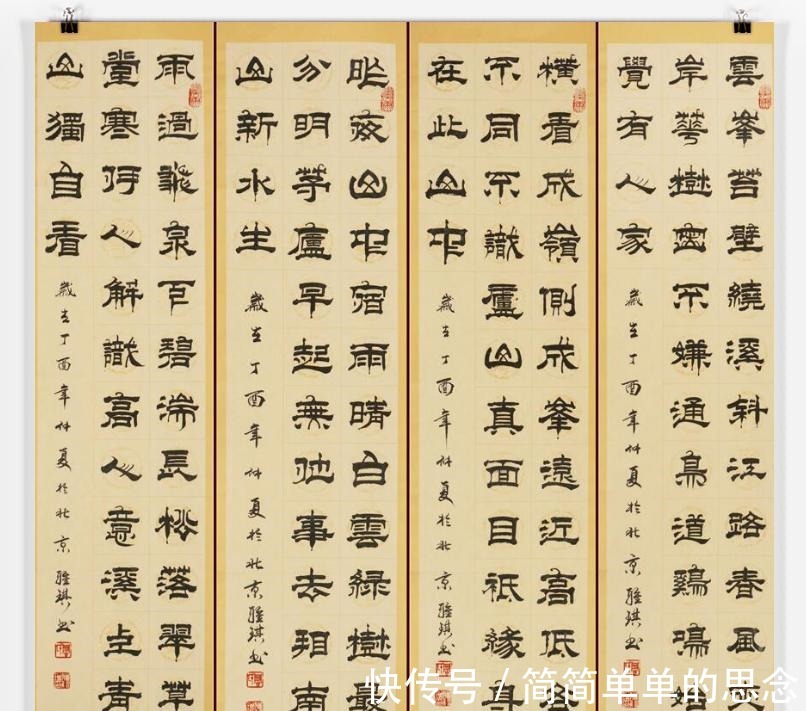 雲峯苔壁繞溪斜江路春風夾
岸華樹密不嫌通鳥道鷄鳴始
覺有人家
歲在丁酉年仲夏於北京 琪书
橫看成嶺側成峯遠近高低各
不同不識廬山真面目祇緣身
在此山中
歲在丁酉年仲夏於北京 琪书
昨夜山中宿雨晴白雲綠樹最
分明茅廬早起無他事去相南
山新水生
歲在丁酉年仲夏於北京 琪书
雨過飛泉下碧湍長松落翠草
堂寒何人解識高人意溪上青
山獨自看
歲在丁酉年仲夏於北京 琪书
快传号 / 简简单单的思念